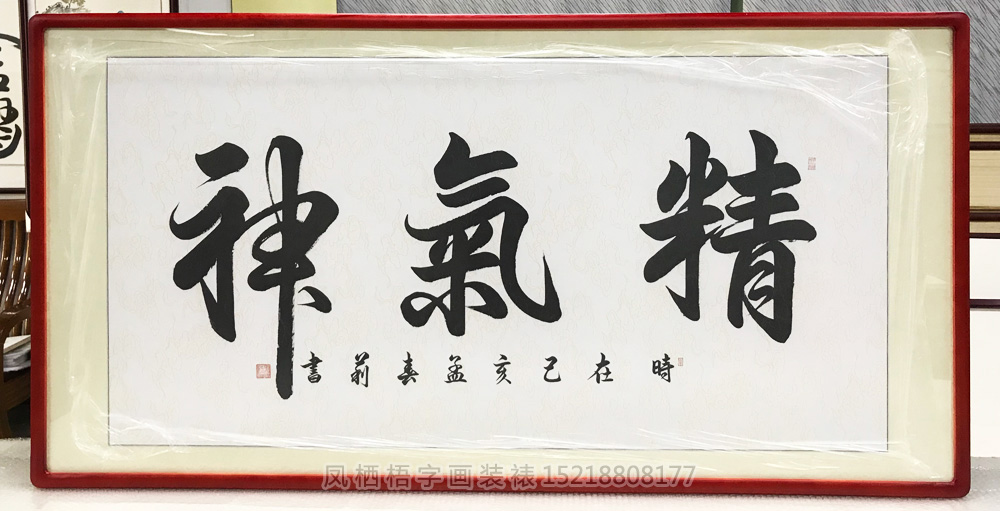 精氣神
時在己亥孟春莉書
凤栖梧字画装裱15218808177